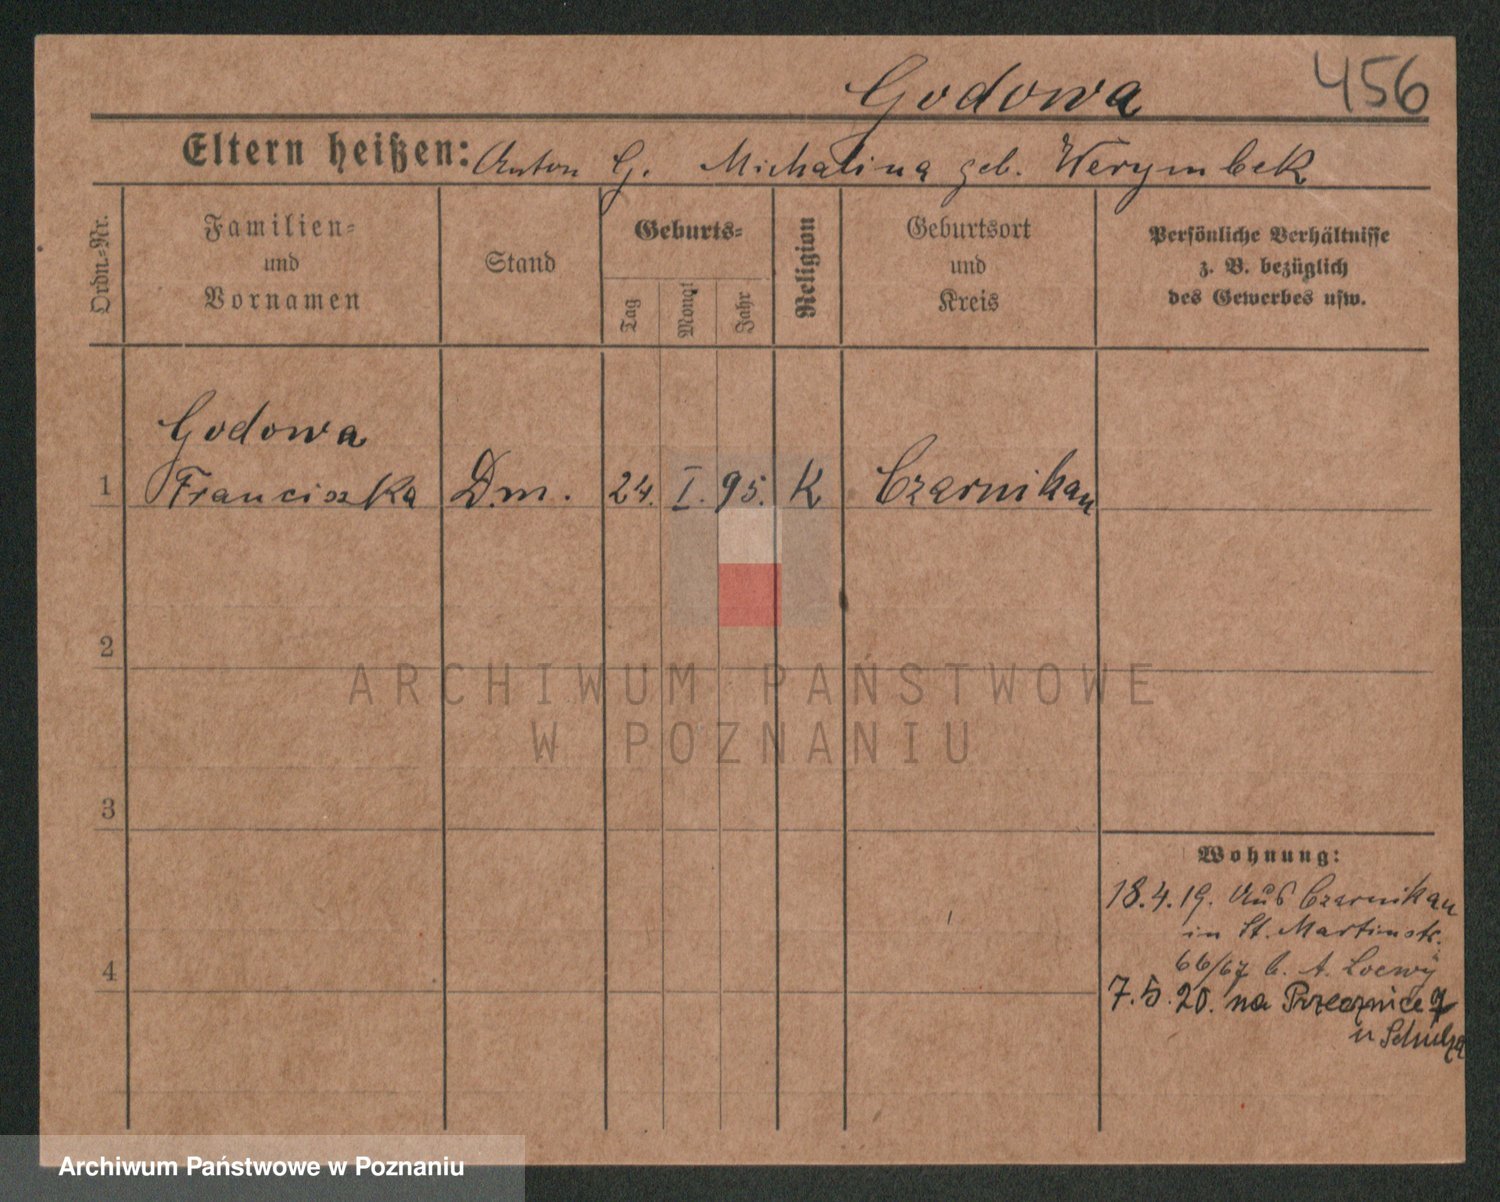 Godowa 456
Eltern heißen: Anton G. Michalina geb. Werymbek
Ordn.-Nr.
Familien-
und
Vornamen
Stand
Geburts-
Tag
Monat
Jahr
Religion
Geburtsort
und
Kreis
Persönliche Verhältnisse
z. B. bezüglich
des Gewerbes usw.
Godowa
1 Franciszka Dm. 24. I. 95. K Czarnikau
2
ARCHIWUM PAŃSTWOWE
W POZNANIU
3
Wohnung:
18.4.19. Aus Czarnikau
in St. Martinstr.
66/67 b. A. Loewy
4
7.5.20. na Przecznice 7
u Schulza
Archiwum Państwowe w Poznaniu